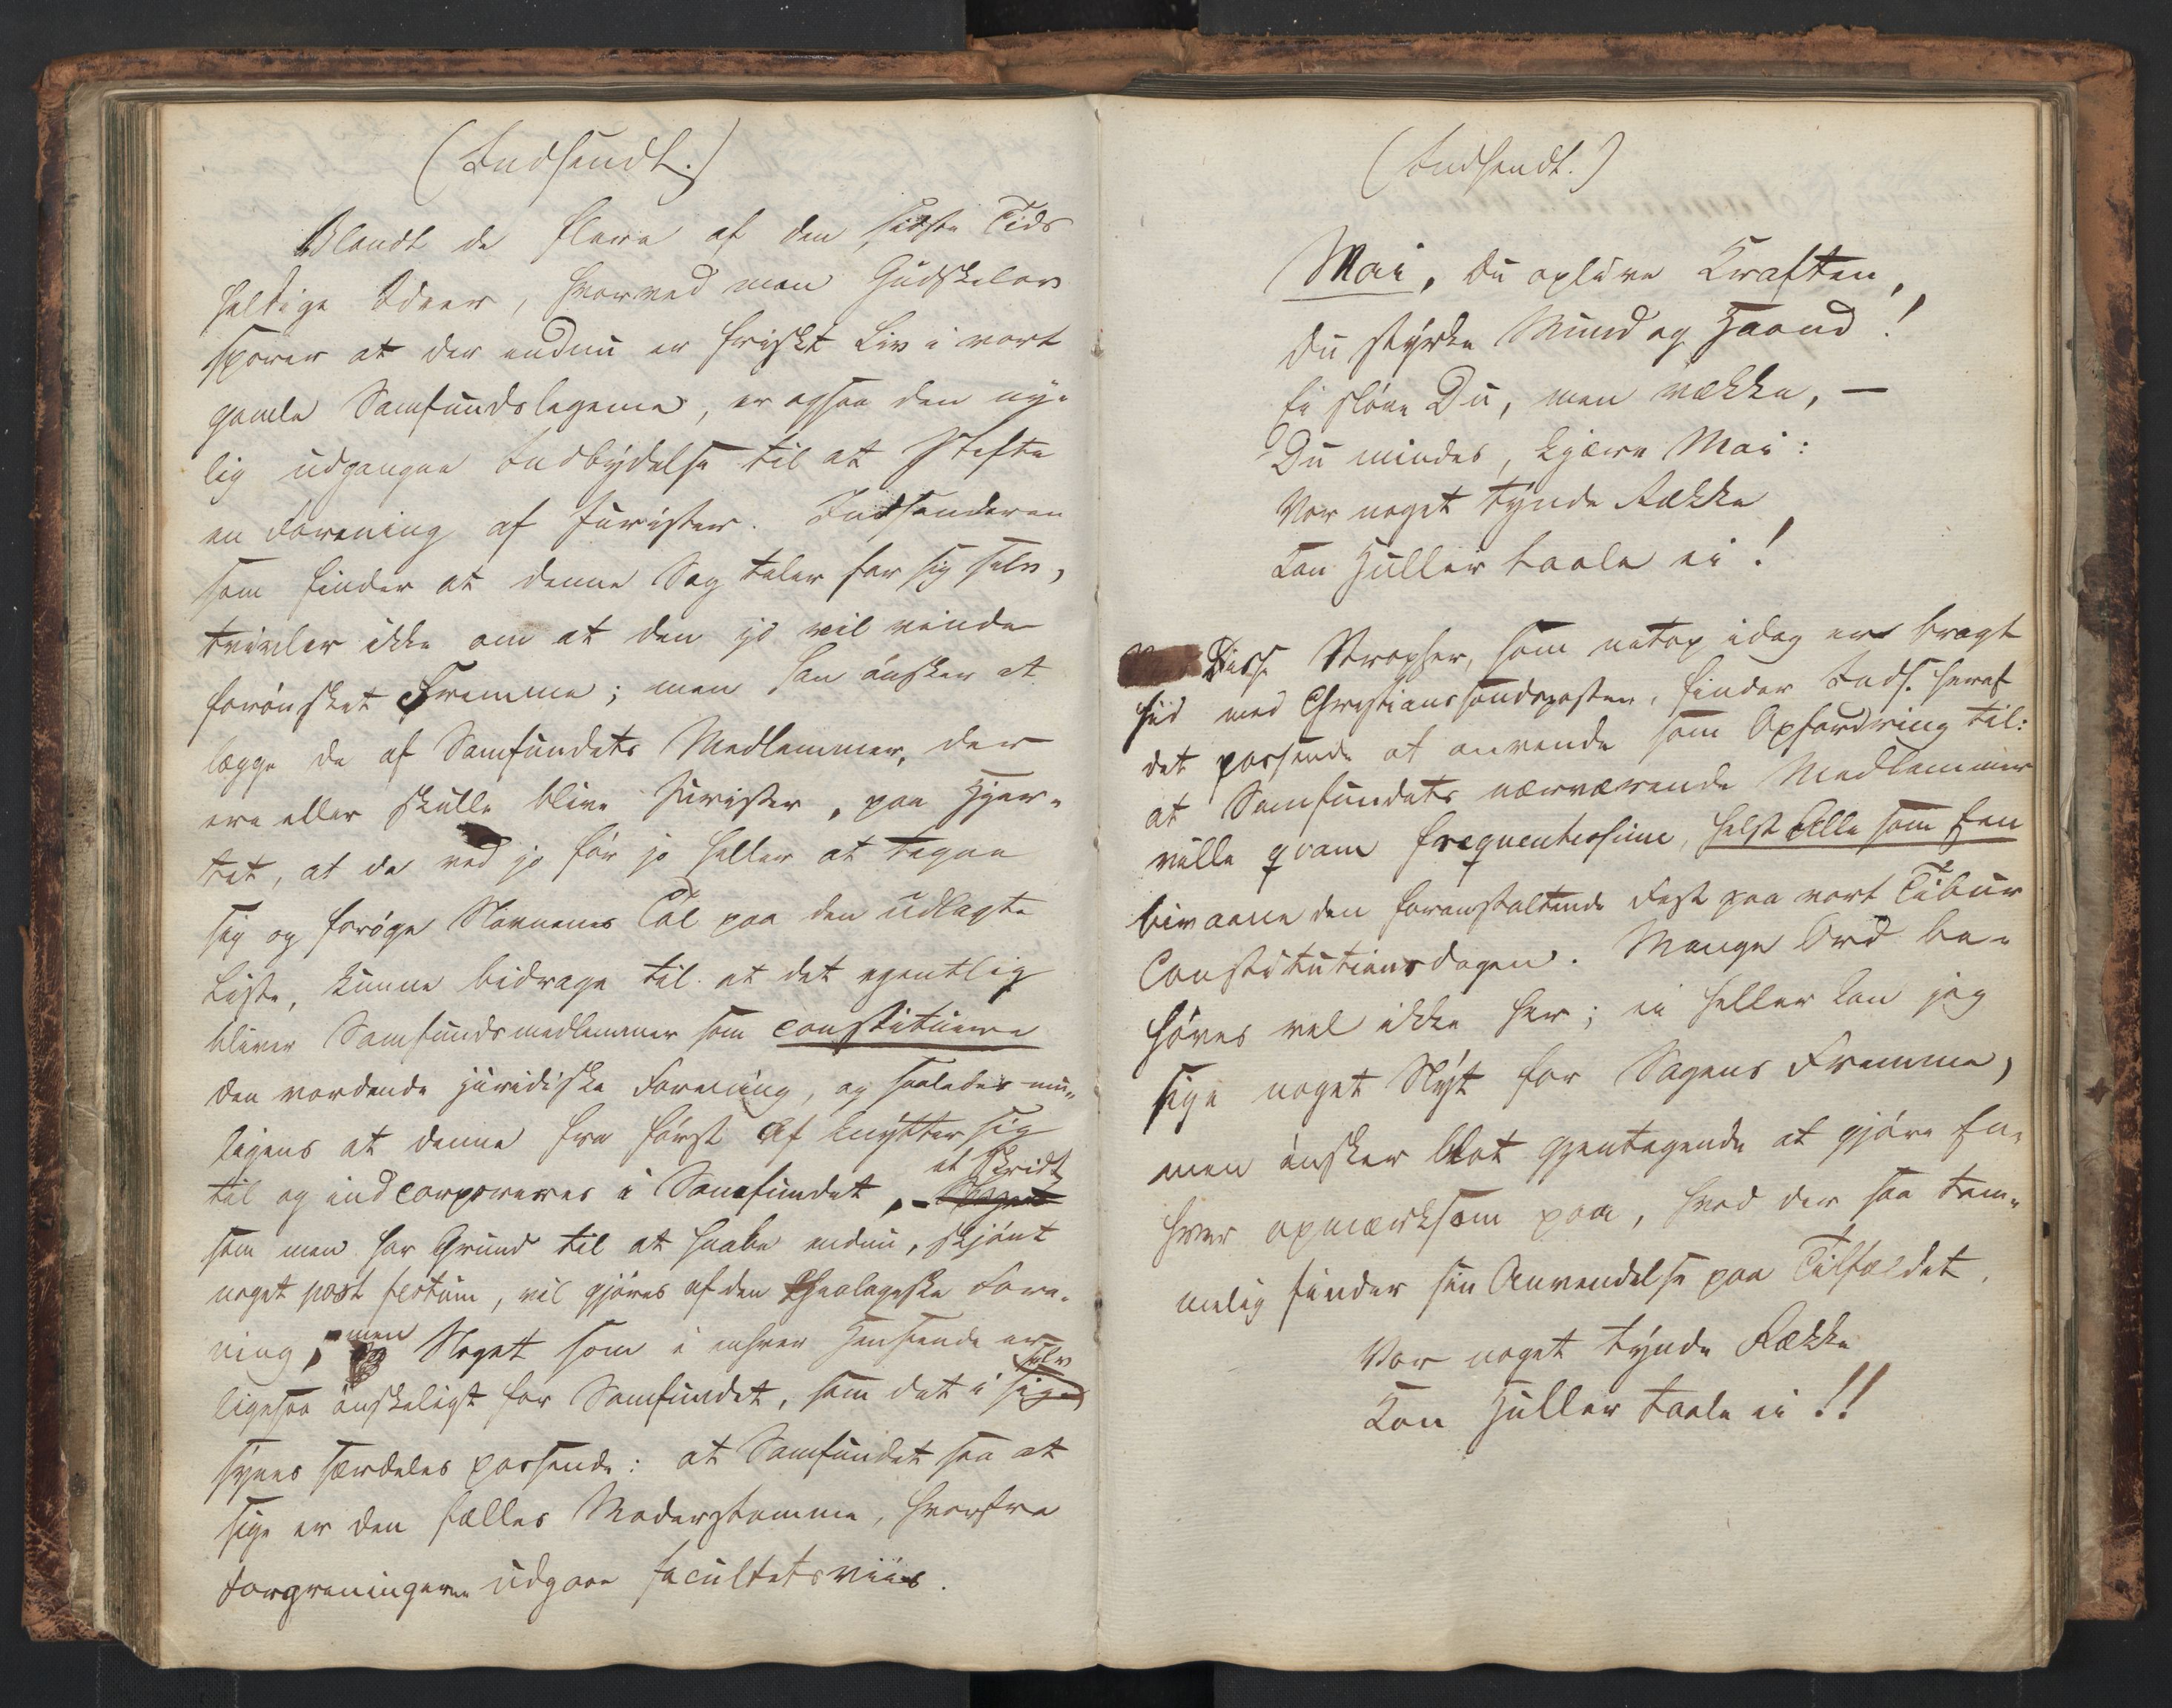 (Indsendt.)
Blandt de flere af den sidste Tids
heldige Ideer, hvorved man Gudskelov
sporer at der endnu er friskt Liv i vort
gamle Samfundslegeme, er ogsaa den ny-
lig udgangne Indbydelse til at stifte
en Forening af Jurister. Indsenderen
som finder at denne Sag taler for sig selv,
tvivler ikke om at den jo vil vinde
forønsket Fremme; men han ønsker at
lægge de af Samfundets Medlemmer, der
ere eller skulle blive Jurister, paa Hjer-
tet, at de ved jo før jo heller at tegne
sig og forøge Navnenes Tal paa den udlagte
Liste, kunne bidrage til at det egentlig
bliver Samfundsmedlemmer som constituere
den vordende juridiske Forening, og saaledes mu-
ligens at denne fra først af knytter sig
til og indcorporeres i Samfundet, - et Skridt
som man har Grund til at haabe endnu, skjønt
noget post festum, vil gjøres af den theologiske Fore-
ning; - men Noget som i enhver Henseende er
ligesaa ønskeligt for Samfundet, som det i sig selv
synes særdeles passende: at Samfundet saa at
sige er den fælles Moderstamme, hvorfra
Forgreningerne udgaae facultetsviis.
(Indsendt.)
Mai, du oplive Kraften,
du styrke Mund og Haand!
Ei sløve Du, men vække, —
Du mindes, kjære Mai:
Vor noget tynde Række
Kan Huller taale ei!
Disse Stropher, som netop idag er bragt
hid med Christianssandsposten, finder Inds. heraf
det passende at anvende som Opfordring til:
at Samfundets nærværende Medlemmer
ville qvam frequentissime, helst Alle som Een
bivaane den foranstaltende Fest paa vort Tibur
Constitutionsdagen. Mange Ord be-
høves vel ikke her; ei heller kan jeg
sige noget Nyt for Sagens Fremme,
men ønsker blot gjentagende at gjøre En-
hver opmærksom paa, hvad der saa tem-
melig finder sin Anvendelse paa Tilfældet,
Vor noget tynde Række
Kan Huller taale ei!!